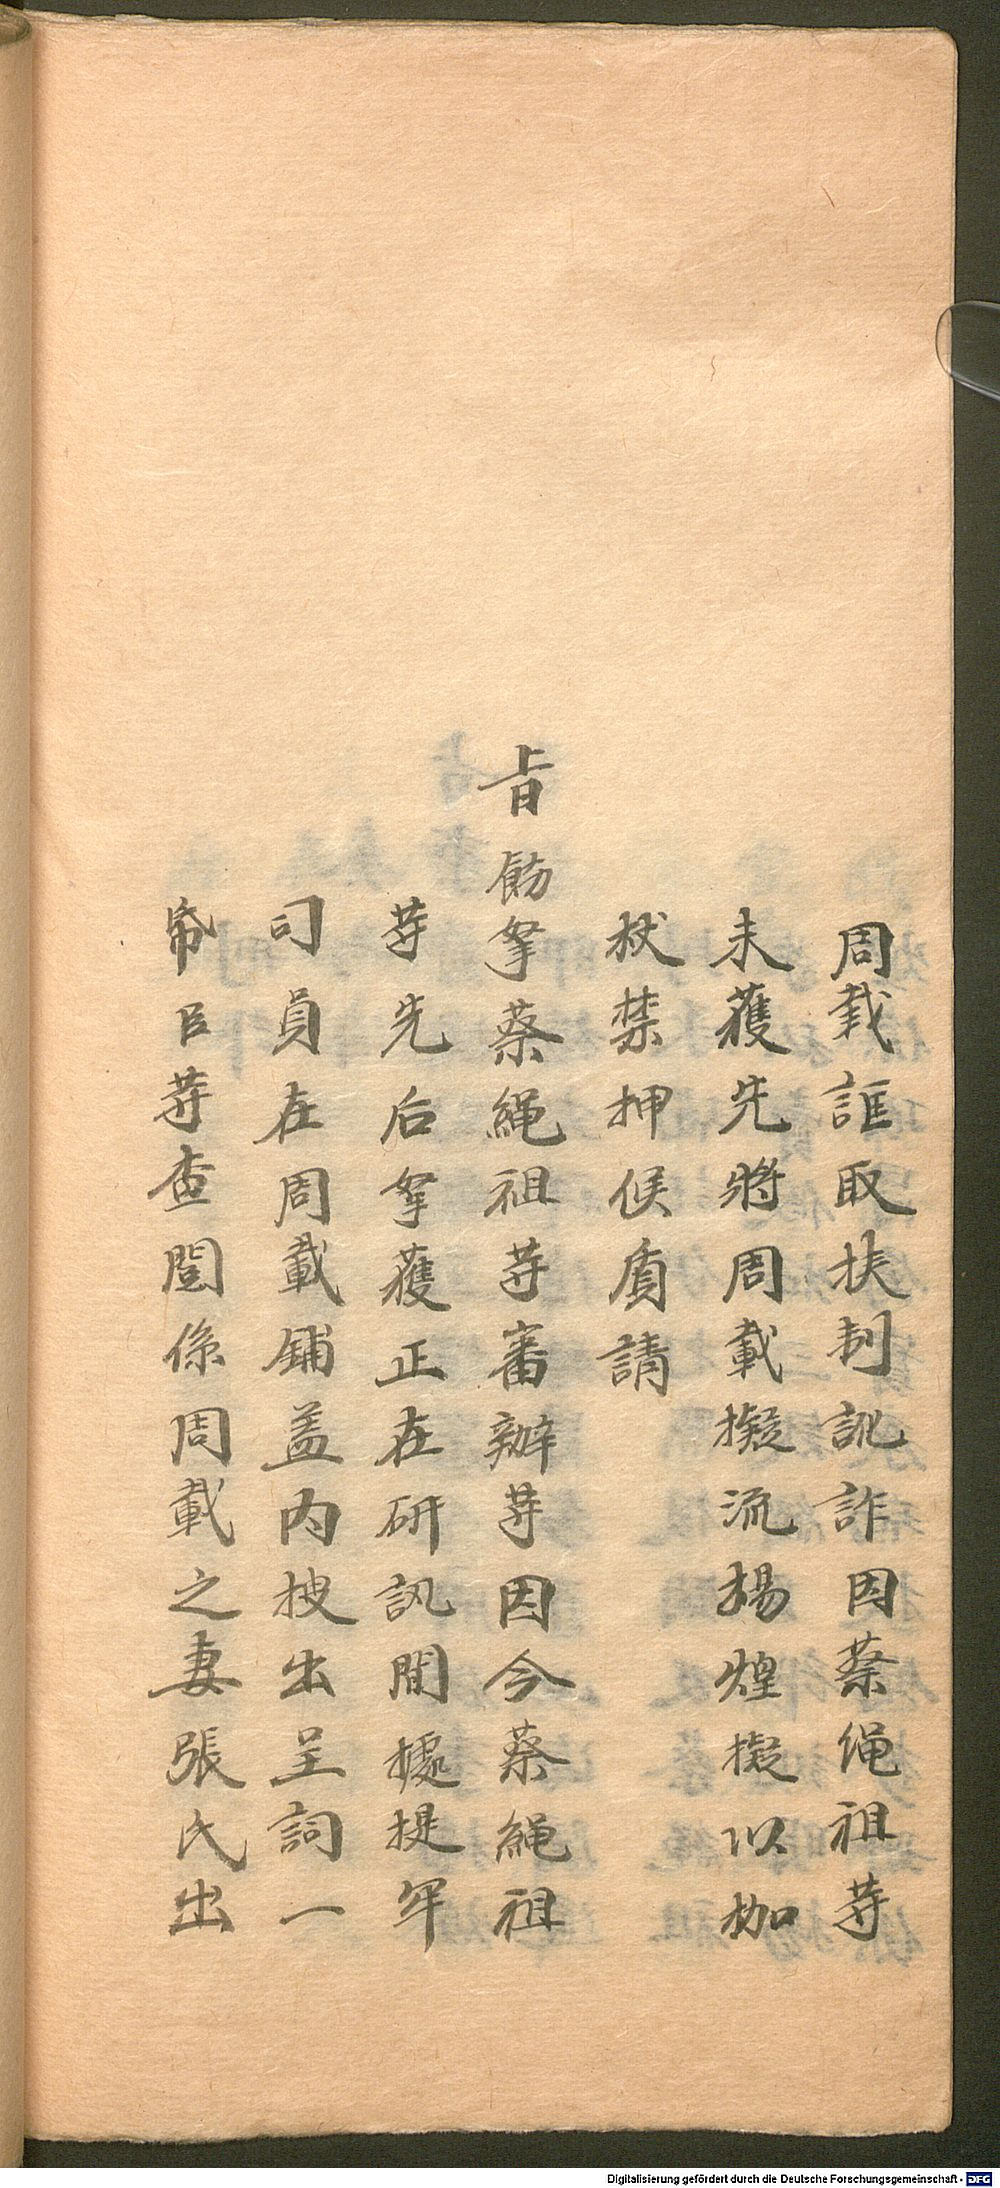 周載誆取挾制訛詐因蔡繩祖等
未獲先將周載擬流楊煌擬以枷
杖禁押候質請
旨飭拏蔡繩祖等審辦等因今蔡繩祖
等先后拏獲正在研訊間據提牢
司員在周載鋪盖内搜出呈詞一
帋臣等查閲係周載之妻張氏出
Digitalisierung gefördert durch die Deutsche Forschungsgemeinschaft - DFG